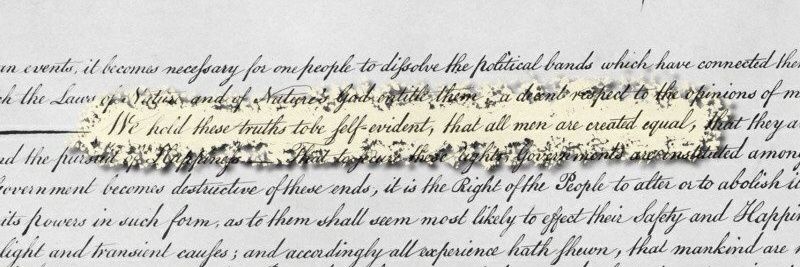 an events, it becomes necessary for one people to dissolve the political bands which have connected them
the Laws of Nature and of Nature's God entitle them a decent respect to the opinions of m
We hold these truths to be self-evident, that all men are created equal, that they a
nd the pursuit of Happiness That to secure these rights Governments are instituted among
Government becomes destructive of these ends, it is the Right of the People to alter or to abolish it
its powers in such form, as to them shall seem most likely to effect their Safety and Happin
light and transient causes; and accordingly all experience hath shewn, that mankind are